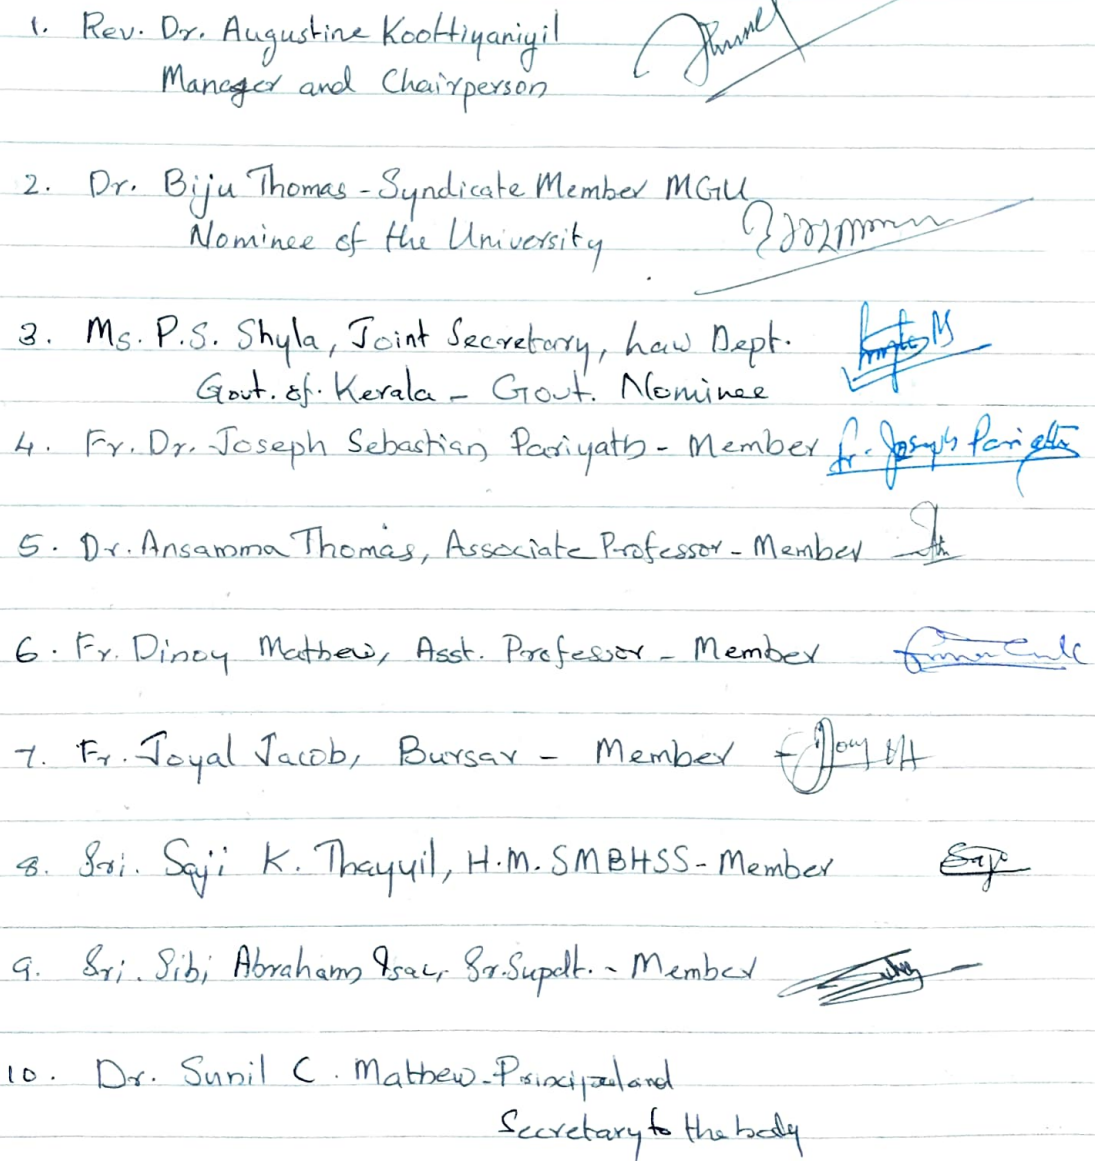 1. Rev. Dr. Augustine Koottiyaniyil
Manager and Chairperson
2. Dr. Biju Thomas - Syndicate Member MGU
Nominee of the University
3. Ms. P.S. Shyla, Joint Secretary, Law Dept.
Govt. of. Kerala - Govt. Nominee
4. Fr. Dr. Joseph Sebastian Pariyath - Member Fr. Joseph Pariyath
5. Dr. Ansamma Thomas, Associate Professor - Member
6. Fr. Dinoy Mathew, Asst. Professor - Member
7. Fr. Joyal Jacob, Bursar - Member
8. Sri. Saji K. Thayyil, H.M. SMBHSS - Member Saji
9. Sri. Sibi Abraham Isac, Sr. Supdt. - Member
10. Dr. Sunil C. Mathew - Principal and
Secretary to the body